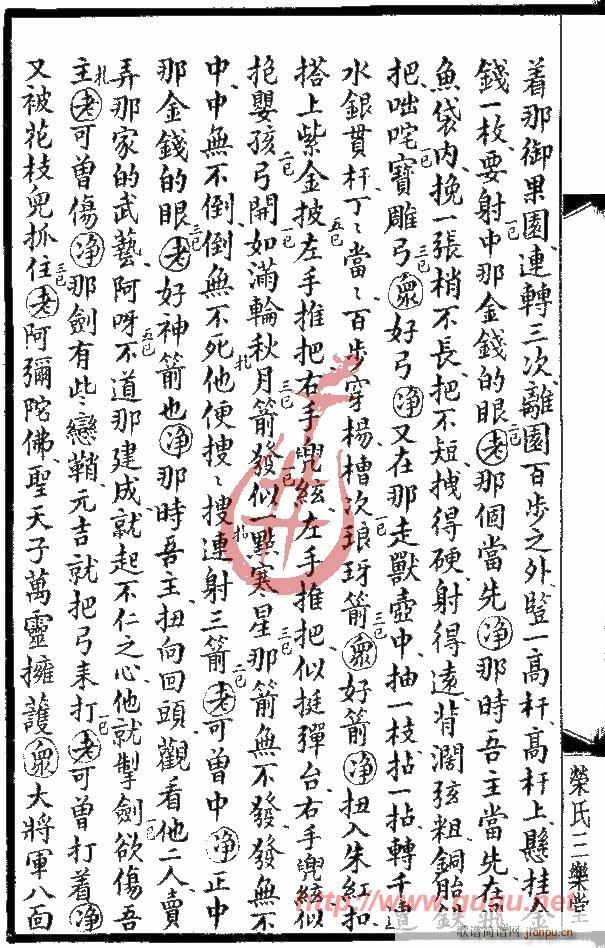 着那御果園連轉三次離園百步之外豎一高杆高杆上懸挂
錢一枚要射中那金錢的眼老那個當先净那時吾主當先在
魚袋内挽一張梢不長把不短拽得硬射得遠背濶弦粗銅胎
把咄咤寶雕弓眾好弓净又在那走獸壺中抽一枝拈一拈轉千
水銀貫杆丁丶當丶百步穿楊槽次琅玡箭眾好箭净扭入朱紅扣
搭上紫金披左手推把右手兜絃左手推把似挺彈台右手兜絃似
抱嬰孩弓開如滿輪秋月箭發似一點寒星那箭無不發發無不
中中無不倒倒無不死他便搜丶搜連射三箭老可曾中净正中
那金錢的眼老好神箭也净那時吾主扭向回頭觀看他二人賣
弄那家的武藝阿呀不道那建成就起不仁之心他就掣劍欲傷吾
主老可曾傷净那劍有些戀鞘元吉就把弓来打老可曾打着净
又被花枝兒抓住老阿彌陀佛聖天子萬靈擁護眾大將軍八面
榮氏三樂堂
http://www.guqu.net
歌谱简谱网
jianpu.cn